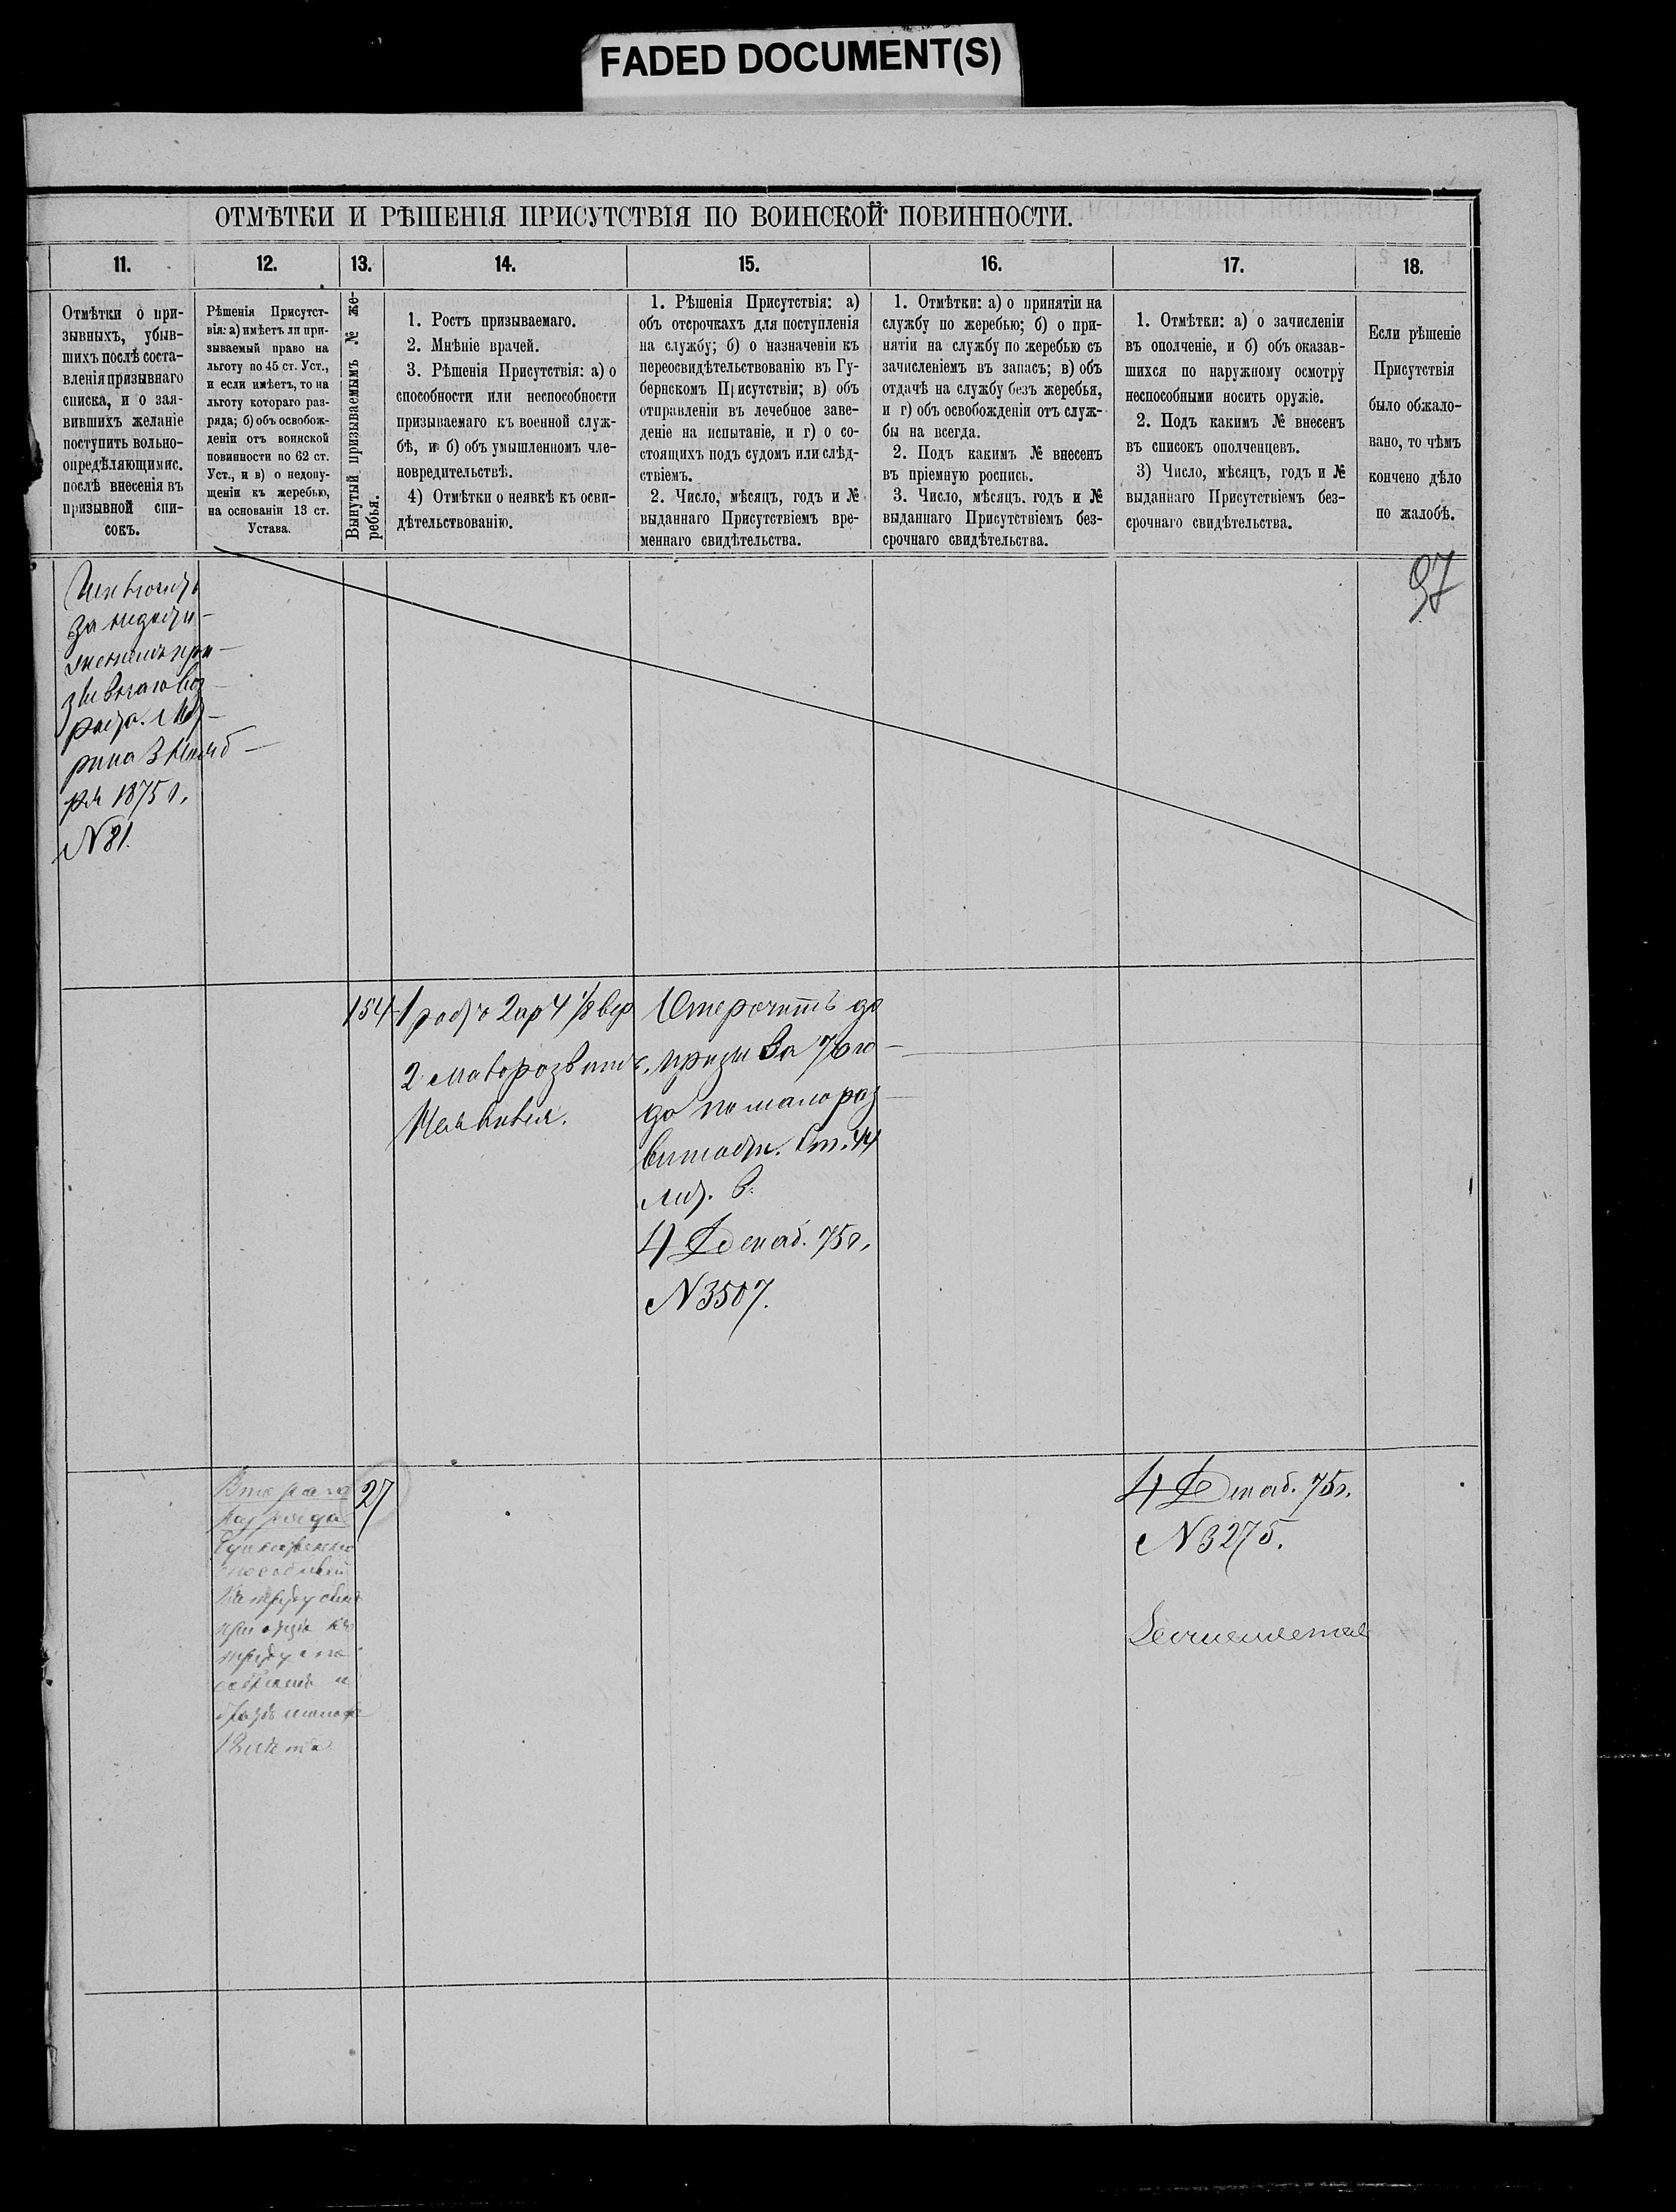 FADED DOCUMENT(S)
ОТМѢТКИ И РѢШЕНІЯ ПРИСУТСТВІЯ ПО ВОИНСКОЙ ПОВИННОСТИ.
11.
Отмѣтки о при-
зывныхъ, убыв-
шихъ послѣ соста-
вленія призывнаго
списка, и о зая-
вившихъ желаніе
поступить вольно-
опредѣляющимис.
послѣ внесенія въ
призывной спи-
сокъ.
12.
Рѣшенія Присутст-
вія: а) имѣетъ ли при-
зываемый право на
льготу по 45 ст. Уст.,
и если имѣетъ, то на
льготу котораго раз-
ряда; б) объ освобож-
деніи отъ воинской
повинности по 62 ст.
Уст., и в) о недопу-
щеніи къ жеребью,
на основаніи 13 ст.
Устава.
13.
Вынутый призываемымъ № же-
ребья.
14.
1. Ростъ призываемаго.
2. Мнѣніе врачей.
3. Рѣшенія Присутствія: а) о
способности или неспособности
призываемаго къ военной служ-
бѣ, и б) объ умышленномъ чле-
новредительствѣ.
4) Отмѣтки о неявкѣ къ осви-
дѣтельствованію.
15.
1. Рѣшенія Присутствія: а)
объ отсрочкахъ для поступленія
на службу; б) о назначеніи къ
переосвидѣтельствованію въ Гу-
бернскомъ Присутствіи; в) объ
отправленіи въ лечебное заве-
деніе на испытаніе, и г) о со-
стоящихъ подъ судомъ или слѣд-
ствіемъ.
2. Число, мѣсяцъ, годъ и №
выданнаго Присутствіемъ вре-
меннаго свидѣтельства.
16.
1. Отмѣтки: а) о принятіи на
службу по жеребью; б) о при-
нятіи на службу по жеребью съ
зачисленіемъ въ запасъ; в) объ
отдачѣ на службу безъ жеребья,
и г) объ освобожденіи отъ служ-
бы на всегда.
2. Подъ какимъ № внесенъ
въ пріемную роспись.
3. Число, мѣсяцъ, годъ и №
выданнаго Присутствіемъ без-
срочнаго свидѣтельства.
17.
1. Отмѣтки: а) о зачисленіи
въ ополченіе, и б) объ оказав-
шихся по наружному осмотру
неспособными носить оружіе.
2. Подъ какимъ № внесенъ
въ списокъ ополченцевъ.
3) Число, мѣсяцъ, годъ и №
выданнаго Присутствіемъ без-
срочнаго свидѣтельства.
18.
Если рѣшеніе
Присутствія
было обжало-
вано, то чѣмъ
кончено дѣло
по жалобѣ.
97
за недости-
женіемъ при-
зывнаго воз-
раста.
1875 г.
N 81.
154
1 ростъ 2 ар 4 1/8 вер
2 малоразвитъ.
Отсрочить до
призыва 76 го-
да по малораз-
витости. Ст. 44
лит. в.
4 Декаб. 75 г.
N 3507.
Втораго
разряда
27
способный
къ труду
4 Декаб. 75 г.
N 3275.